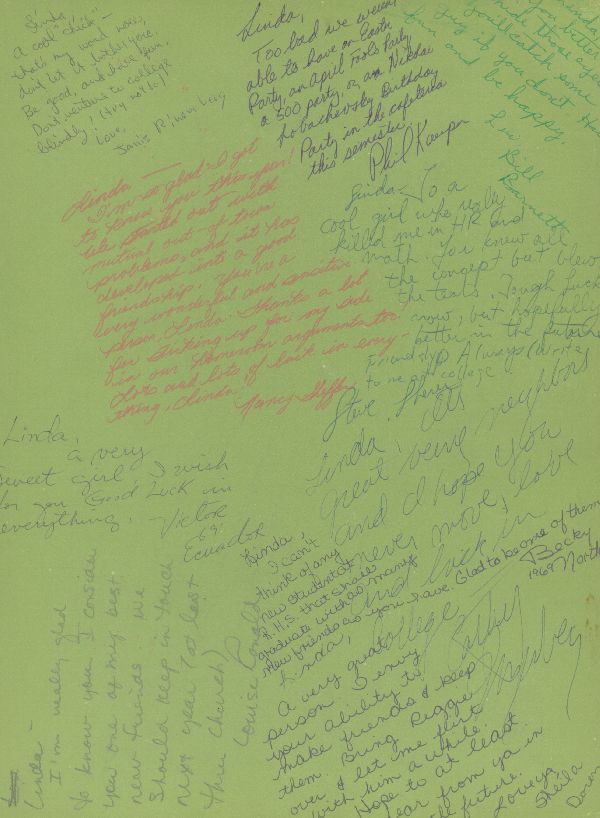 Linda,
A cool "chick" -
that's my word now,
don't let it bother you.
Be good, and have fun.
Don't venture to college
blindly! (try not to!)
Love,
Janis
Linda,
Too bad we weren't
able to have an Earth
Party, an April Fools Party
a 500 party, or a Nikolai
Lobachevsky Birthday
Party in the cafeteria
this semester.
Phil
Linda
you better
those
you'll catch some
guy if you don't. Have
fun and be happy.
Luv
Bill
Barnett
Linda —
I'm so glad I got
to know you this year!
We started out with
mutual out-of-town
problems, and it has
developed into a good
friendship. You're a
very wonderful and sensitive
person, Linda. Thanks a lot
for sticking up for my side
in our Homeroom arguments too.
Lots and lots of luck in every-
thing, Linda.
Nancy
Linda - To a
cool girl who really
killed me in HR and
math. You knew all
the concept but blew
the tests. Tough luck
now, but hopefully
better in the future
Friendly Always (write
to me at college
Steve
Linda, It's
great being neighbors
and I hope you
never move, love
and luck in
college
Kathy
Linda,
a very
sweet girl I wish
for you Good Luck in
everything.
Victor
Eg.
Ecuador
Linda,
I can't
think of any
new student at
H.H.S. that should
graduate with so many
new friends as you have. Glad to be one of them
Becky
1969 North
Linda -
I'm really glad
to know you. I consider
you one of my best
new friends. We
should keep in touch
next year (at least
thru church)
Louise
Linda,
A very great
person. I envy
your ability to
make friends & keep
them. Bring
over & let me flirt
with him a while.
Hope to at least
hear from ya in
future.
Love ya
Sheila